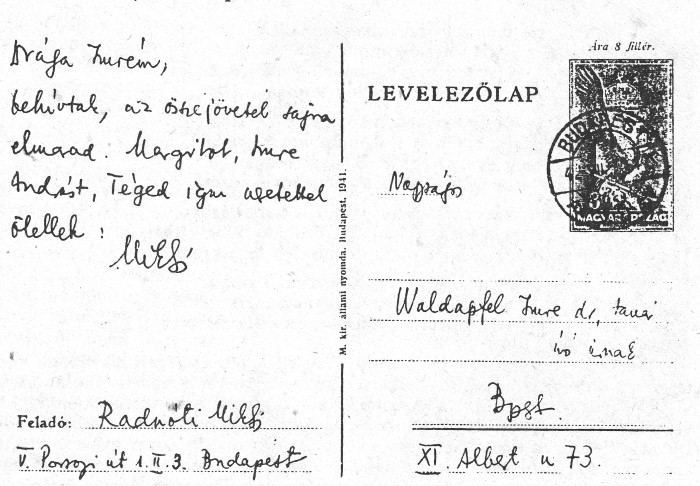 Drága Imrém,
behívtak, az összejövetel sajna
elmarad. Margitot, Imre
Andrást, Téged igen szeretettel
ölellek:
Miklós
Feladó: Radnóti Miklós
V. Pozsonyi út 1. II. 3. Budapest
M. kir. állami nyomda, Budapest, 1941.
Ára 8 fillér.
LEVELEZŐLAP
BUDAPEST
MAGYARORSZÁG
Nagyságos
Waldapfel Imre dr, tanár
író úrnak
Bpst.
XI. Albert u 73.